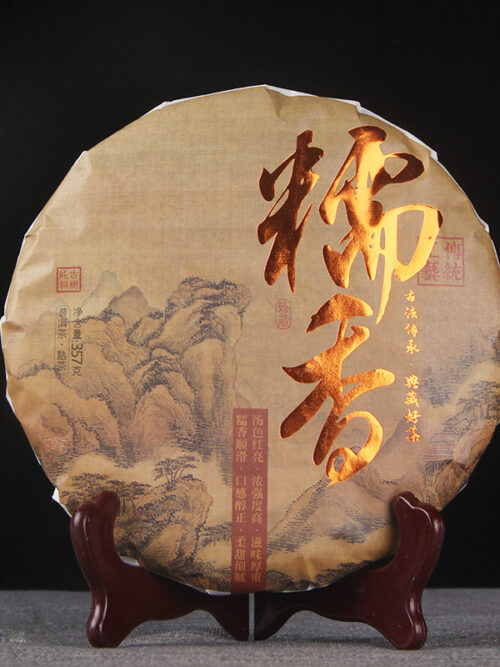 糯香
傳統
藝
古法傳承·典藏好茶
珍藏
古樹
純料
净含量357克
普洱茶·熟茶
汤色红亮 浓强度高·滋味厚重
糯香顺滑·口感醇正·柔甜细腻